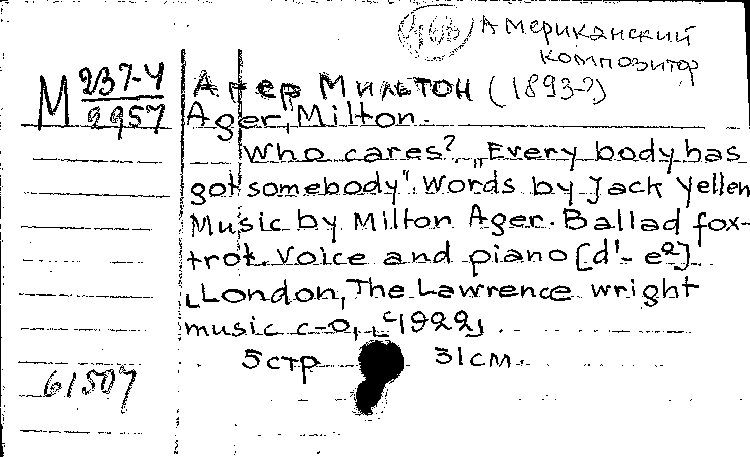 Американский
композитор
М 237-4
2957
Агер, Мильтон (1893-?)
Ager, Milton.
Who cares? „Every body has
got somebody". Words by Jack Yellen
Music by Milton Ager. Ballad fox-
trot. Voice and piano [d'- e²].
London, The Lawrence wright
music c-o, 1922,
5 стр 31 см.
61507